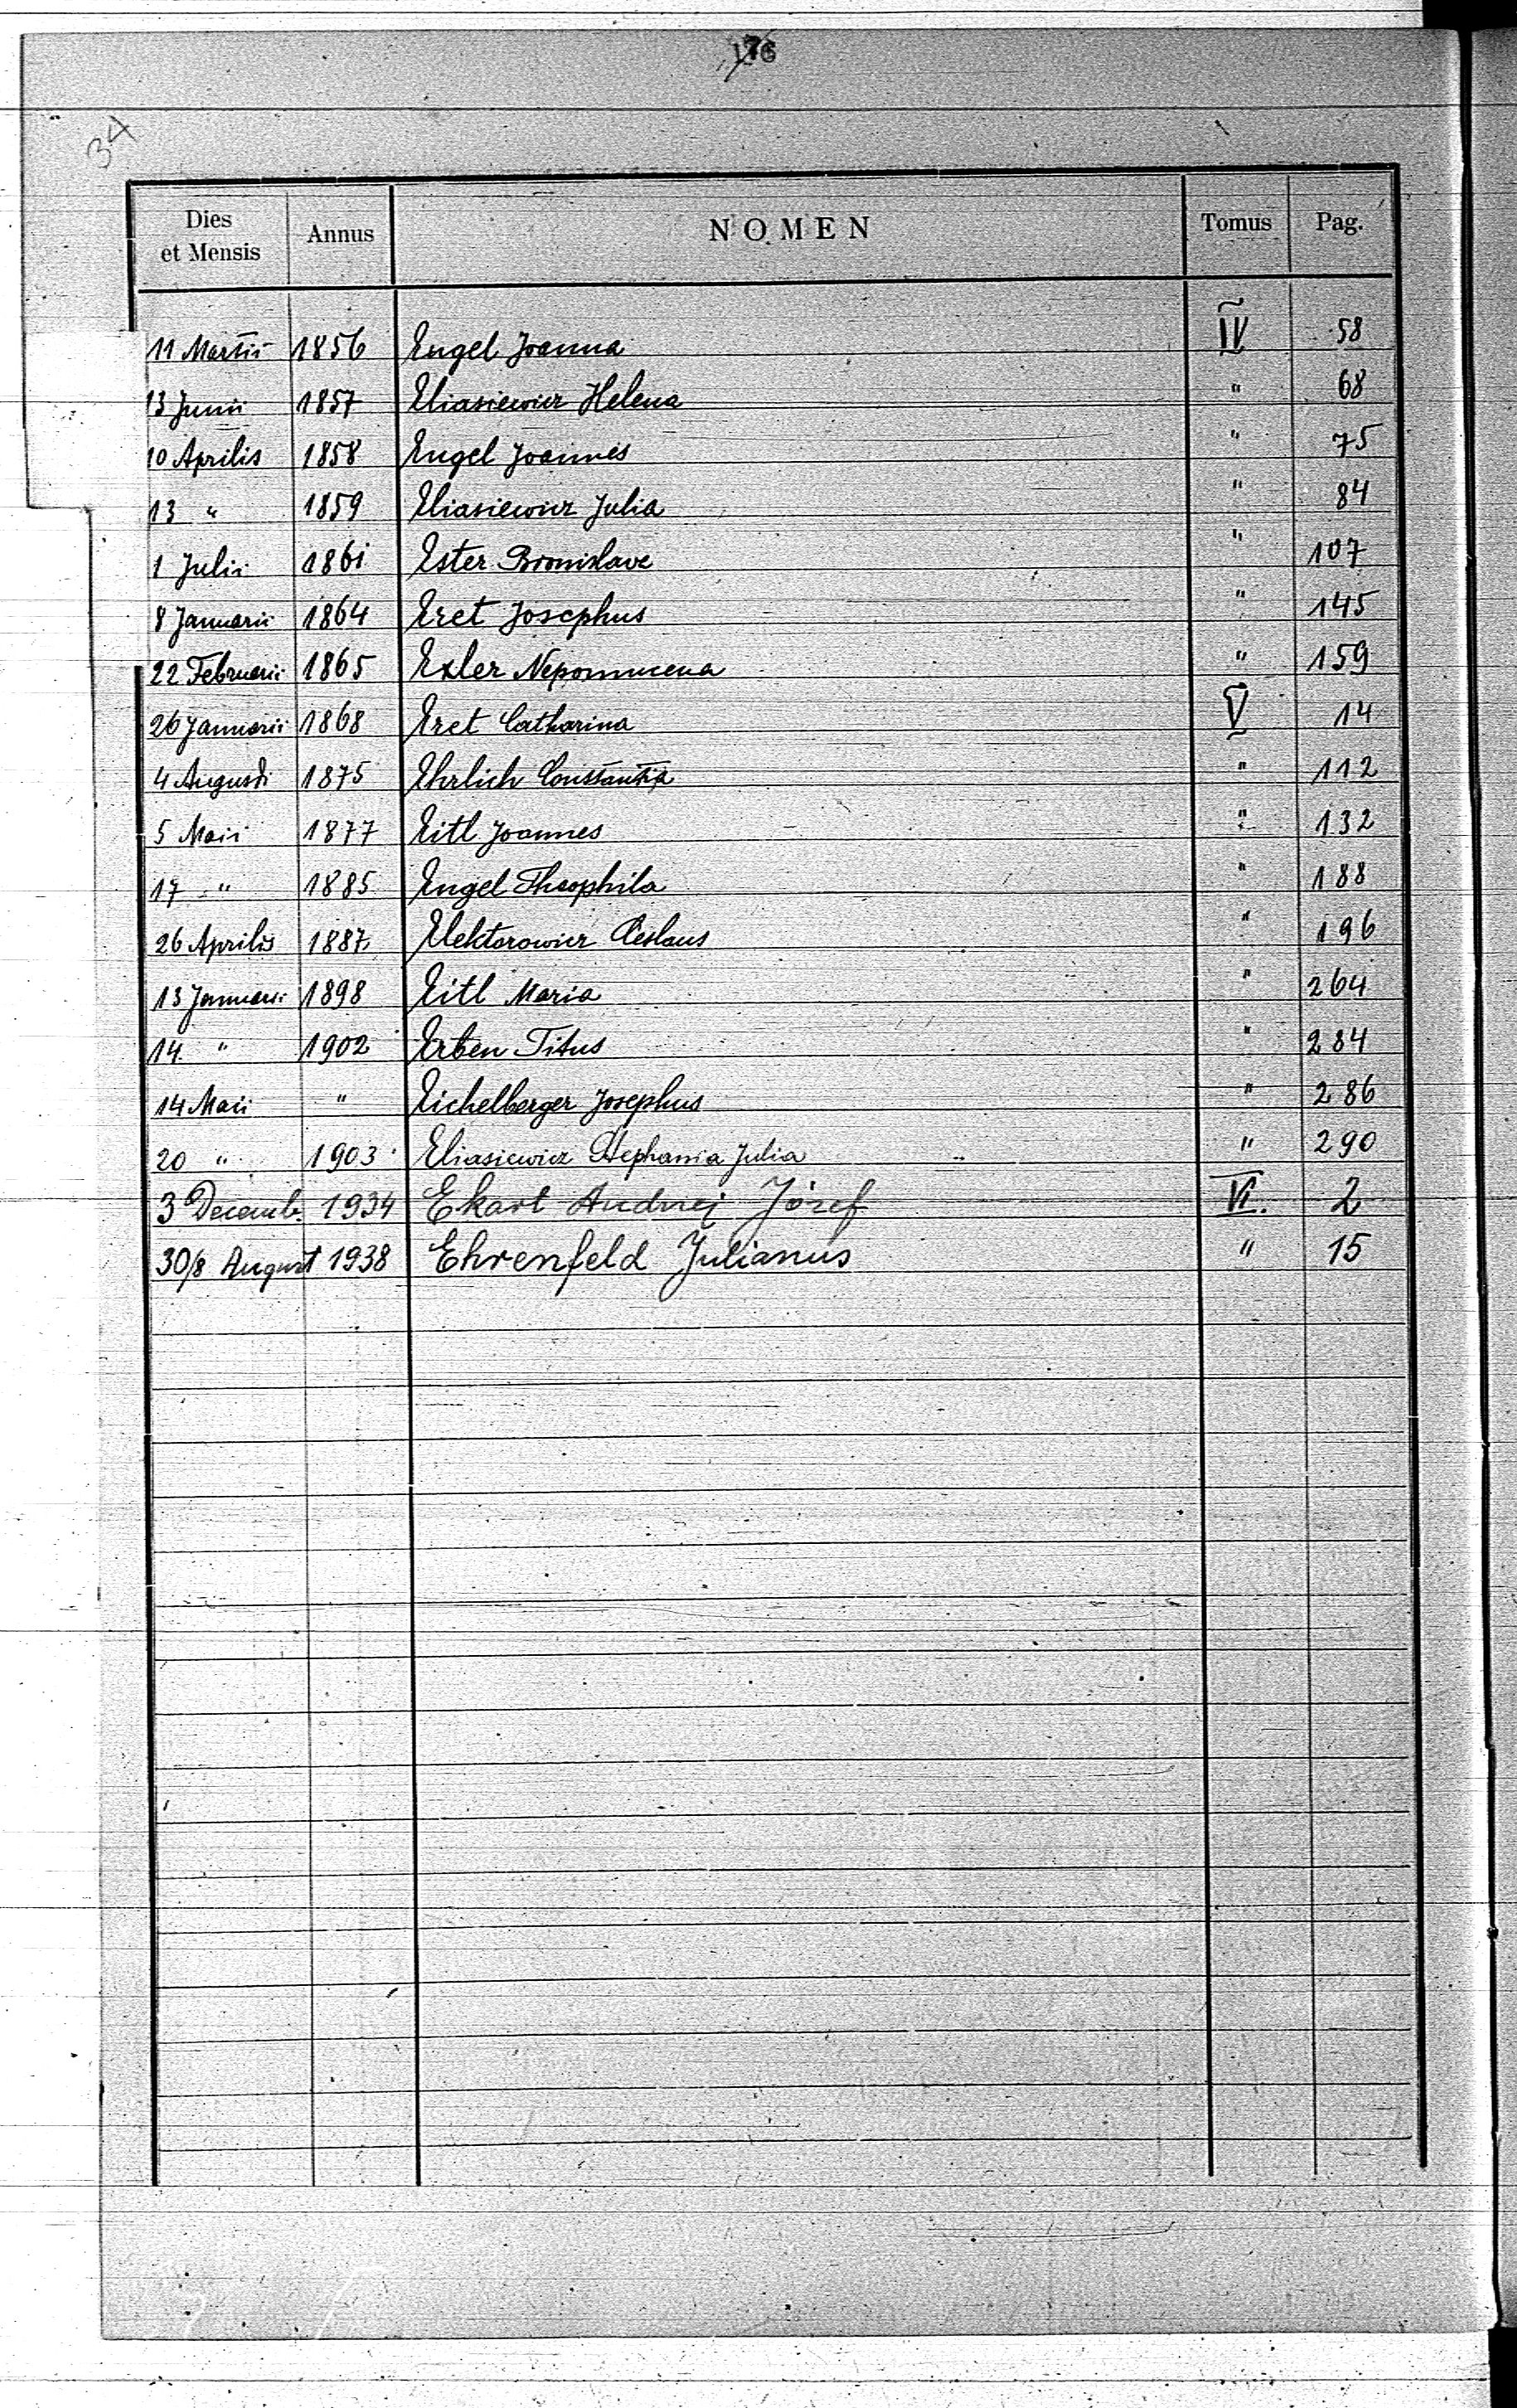 176
34
Dies et Mensis Annus NOMEN Tomus Pag.
11 Martii 1856 Engel Joanna IV 58
13 Junii 1857 Eliasiewicz Helena " 68
10 Aprilis 1858 Engel Joannes " 75
13 " 1859 Eliasiewicz Julia " 84
1 Julii 1861 Ester Bronislava " 107
8 Januarii 1864 Eret Josephus " 145
22 Februarii 1865 Exler Nepomucena " 159
26 Januarii 1868 Eret Catharina V 14
4 Augusti 1875 Ehrlich Constantia " 112
5 Maii 1877 Eitl Joannes " 132
17 " 1885 Engel Theophila " 188
26 Aprilis 1887 Elektorowicz Ceslaus " 196
13 Januarii 1898 Eitl Maria " 264
14 " 1902 Erben Titus " 284
14 Maii " Eichelberger Josephus " 286
20 " 1903 Eliasiewicz Stephania Julia " 290
3 Decemb. 1934 Ekart Andrzej Józef VI. 2
30/8 August 1938 Ehrenfeld Julianus " 15